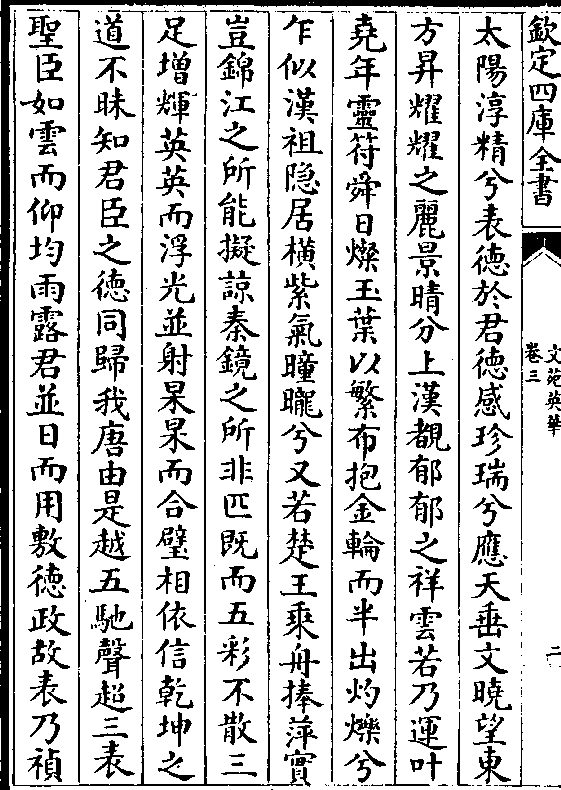 欽定四庫全書
文苑英華
卷三
二
太陽淳精兮表德於君德感珍瑞兮應天垂文曉望東
方昇耀耀之麗景晴分上漢覩郁郁之祥雲若乃運叶
堯年靈符舜日燦玉葉以繁布抱金輪而半出灼爍兮
乍似漢祖隐居橫紫氣曈曨兮又若楚王乘舟捧萍實
豈錦江之所能擬諒秦鏡之所非匹既而五彩不散三
足增輝英英而浮光並射杲杲而合璧相依信乾坤之
道不昧知君臣之德同歸我唐由是越五馳聲超三表
聖臣如雲而仰均雨露君並日而用敷德政故表乃禎